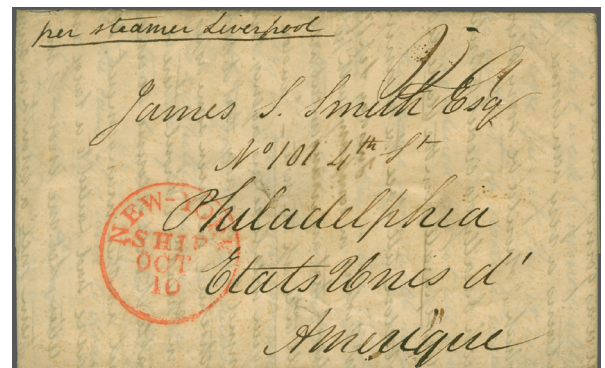 per steamer Liverpool
James S. Smith Esq
No 101 4th St
Philadelphia
Etats Unies d'
Amerique
NEW-YORK
SHIP
OCT
10